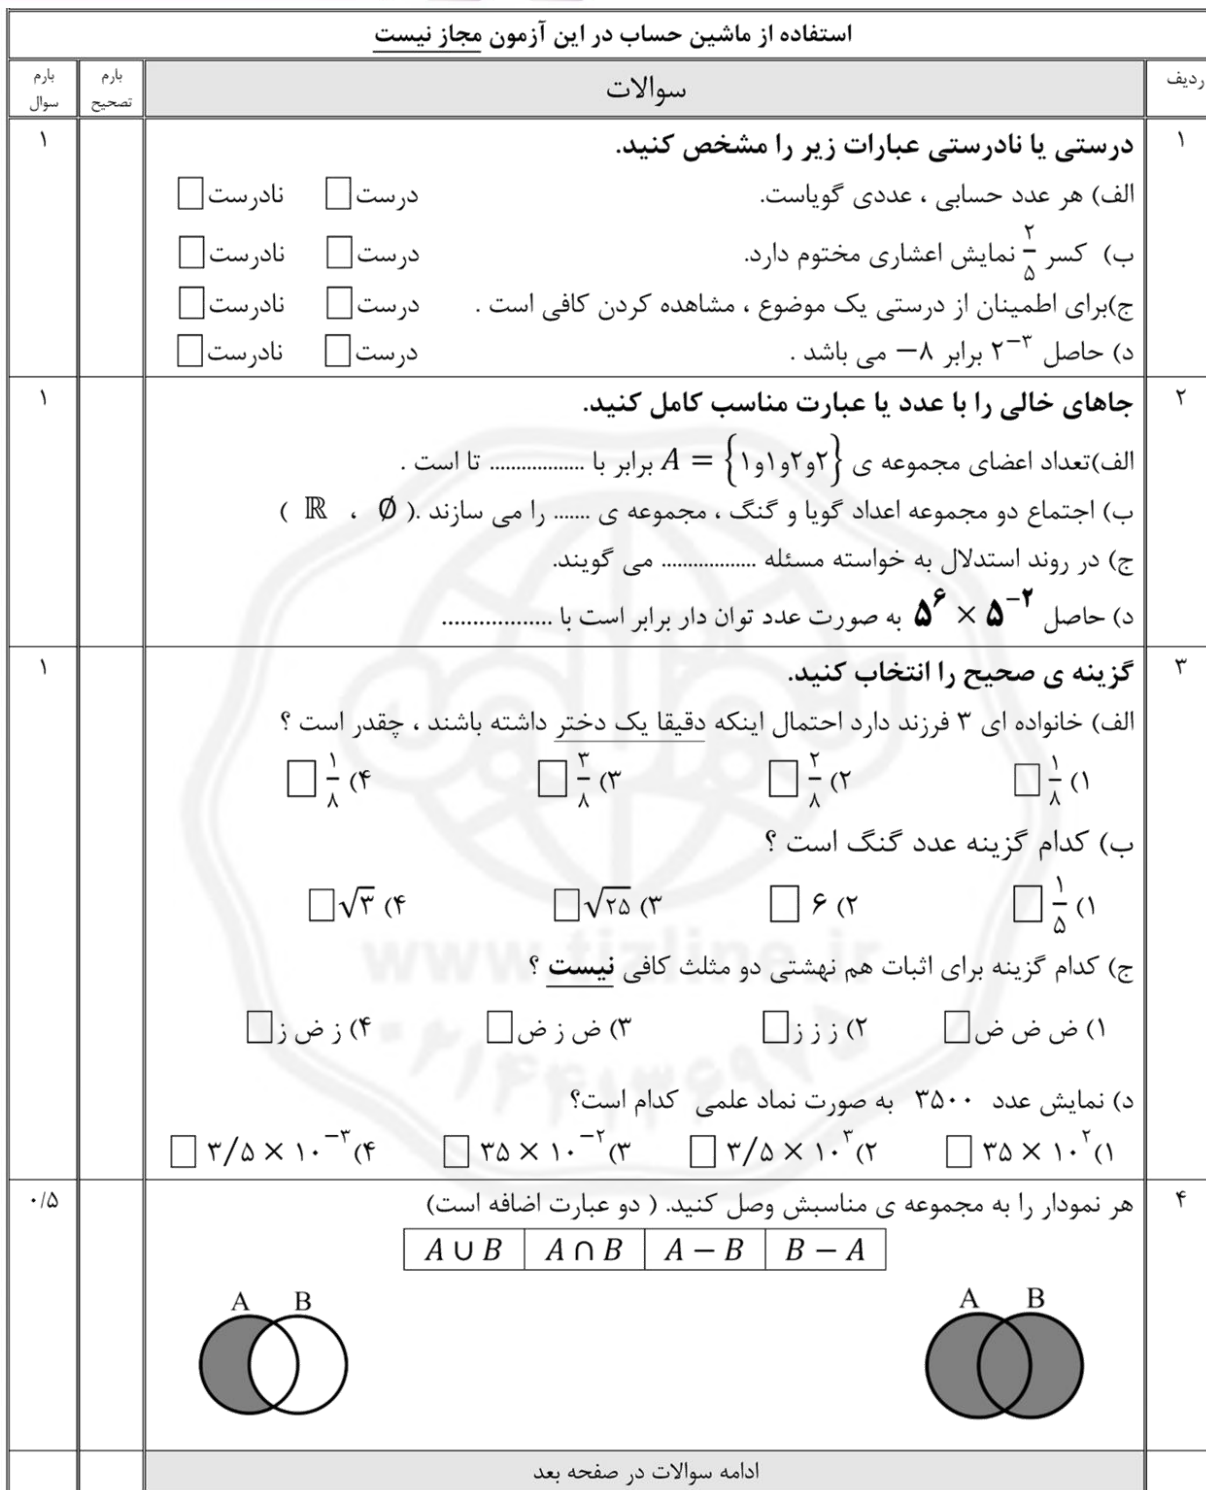 استفاده از ماشین حساب در این آزمون مجاز نیست
ردیف سوالات بارم تصحیح بارم سوال
۱ درستی یا نادرستی عبارات زیر را مشخص کنید. ۱
الف) هر عدد حسابی ، عددی گویاست. درست□ نادرست□
ب) کسر ۲/۵ نمایش اعشاری مختوم دارد. درست□ نادرست□
ج)برای اطمینان از درستی یک موضوع ، مشاهده کردن کافی است . درست□ نادرست□
د) حاصل ۲⁻۳ برابر ۸− می باشد . درست□ نادرست□
۲ جاهای خالی را با عدد یا عبارت مناسب کامل کنید. ۱
الف)تعداد اعضای مجموعه ی A = {۱و۱و۲و۲} برابر با .................. تا است .
ب) اجتماع دو مجموعه اعداد گویا و گنگ ، مجموعه ی ....... را می سازند .( ∅ ، ℝ )
ج) در روند استدلال به خواسته مسئله .................. می گویند.
د) حاصل ۵^۶ × ۵^−۲ به صورت عدد توان دار برابر است با ..................
۳ گزینه ی صحیح را انتخاب کنید. ۱
الف) خانواده ای ۳ فرزند دارد احتمال اینکه دقیقا یک دختر داشته باشند ، چقدر است ؟
۱) ۱/۸ □ ۲) ۲/۸ □ ۳) ۳/۸ □ ۴) ۱/۸ □
ب) کدام گزینه عدد گنگ است ؟
۱) ۱/۵ □ ۲) ۶ □ ۳) √۲۵ □ ۴) √۳ □
ج) کدام گزینه برای اثبات هم نهشتی دو مثلث کافی نیست ؟
۱) ض ض ض□ ۲) ز ز ز□ ۳) ض ز ض□ ۴) ز ض ز□
د) نمایش عدد ۳۵۰۰ به صورت نماد علمی کدام است؟
۱) ۳۵ × ۱۰^۲ □ ۲) ۳/۵ × ۱۰^۳ □ ۳) ۳۵ × ۱۰^−۲ □ ۴) ۳/۵ × ۱۰^−۳ □
۴ هر نمودار را به مجموعه ی مناسبش وصل کنید. ( دو عبارت اضافه است) ۰/۵
A ∪ B A ∩ B A − B B − A
A B A B
ادامه سوالات در صفحه بعد
www.tizline.ir
۰۲۱۴۴۱۳۶۹۷۵